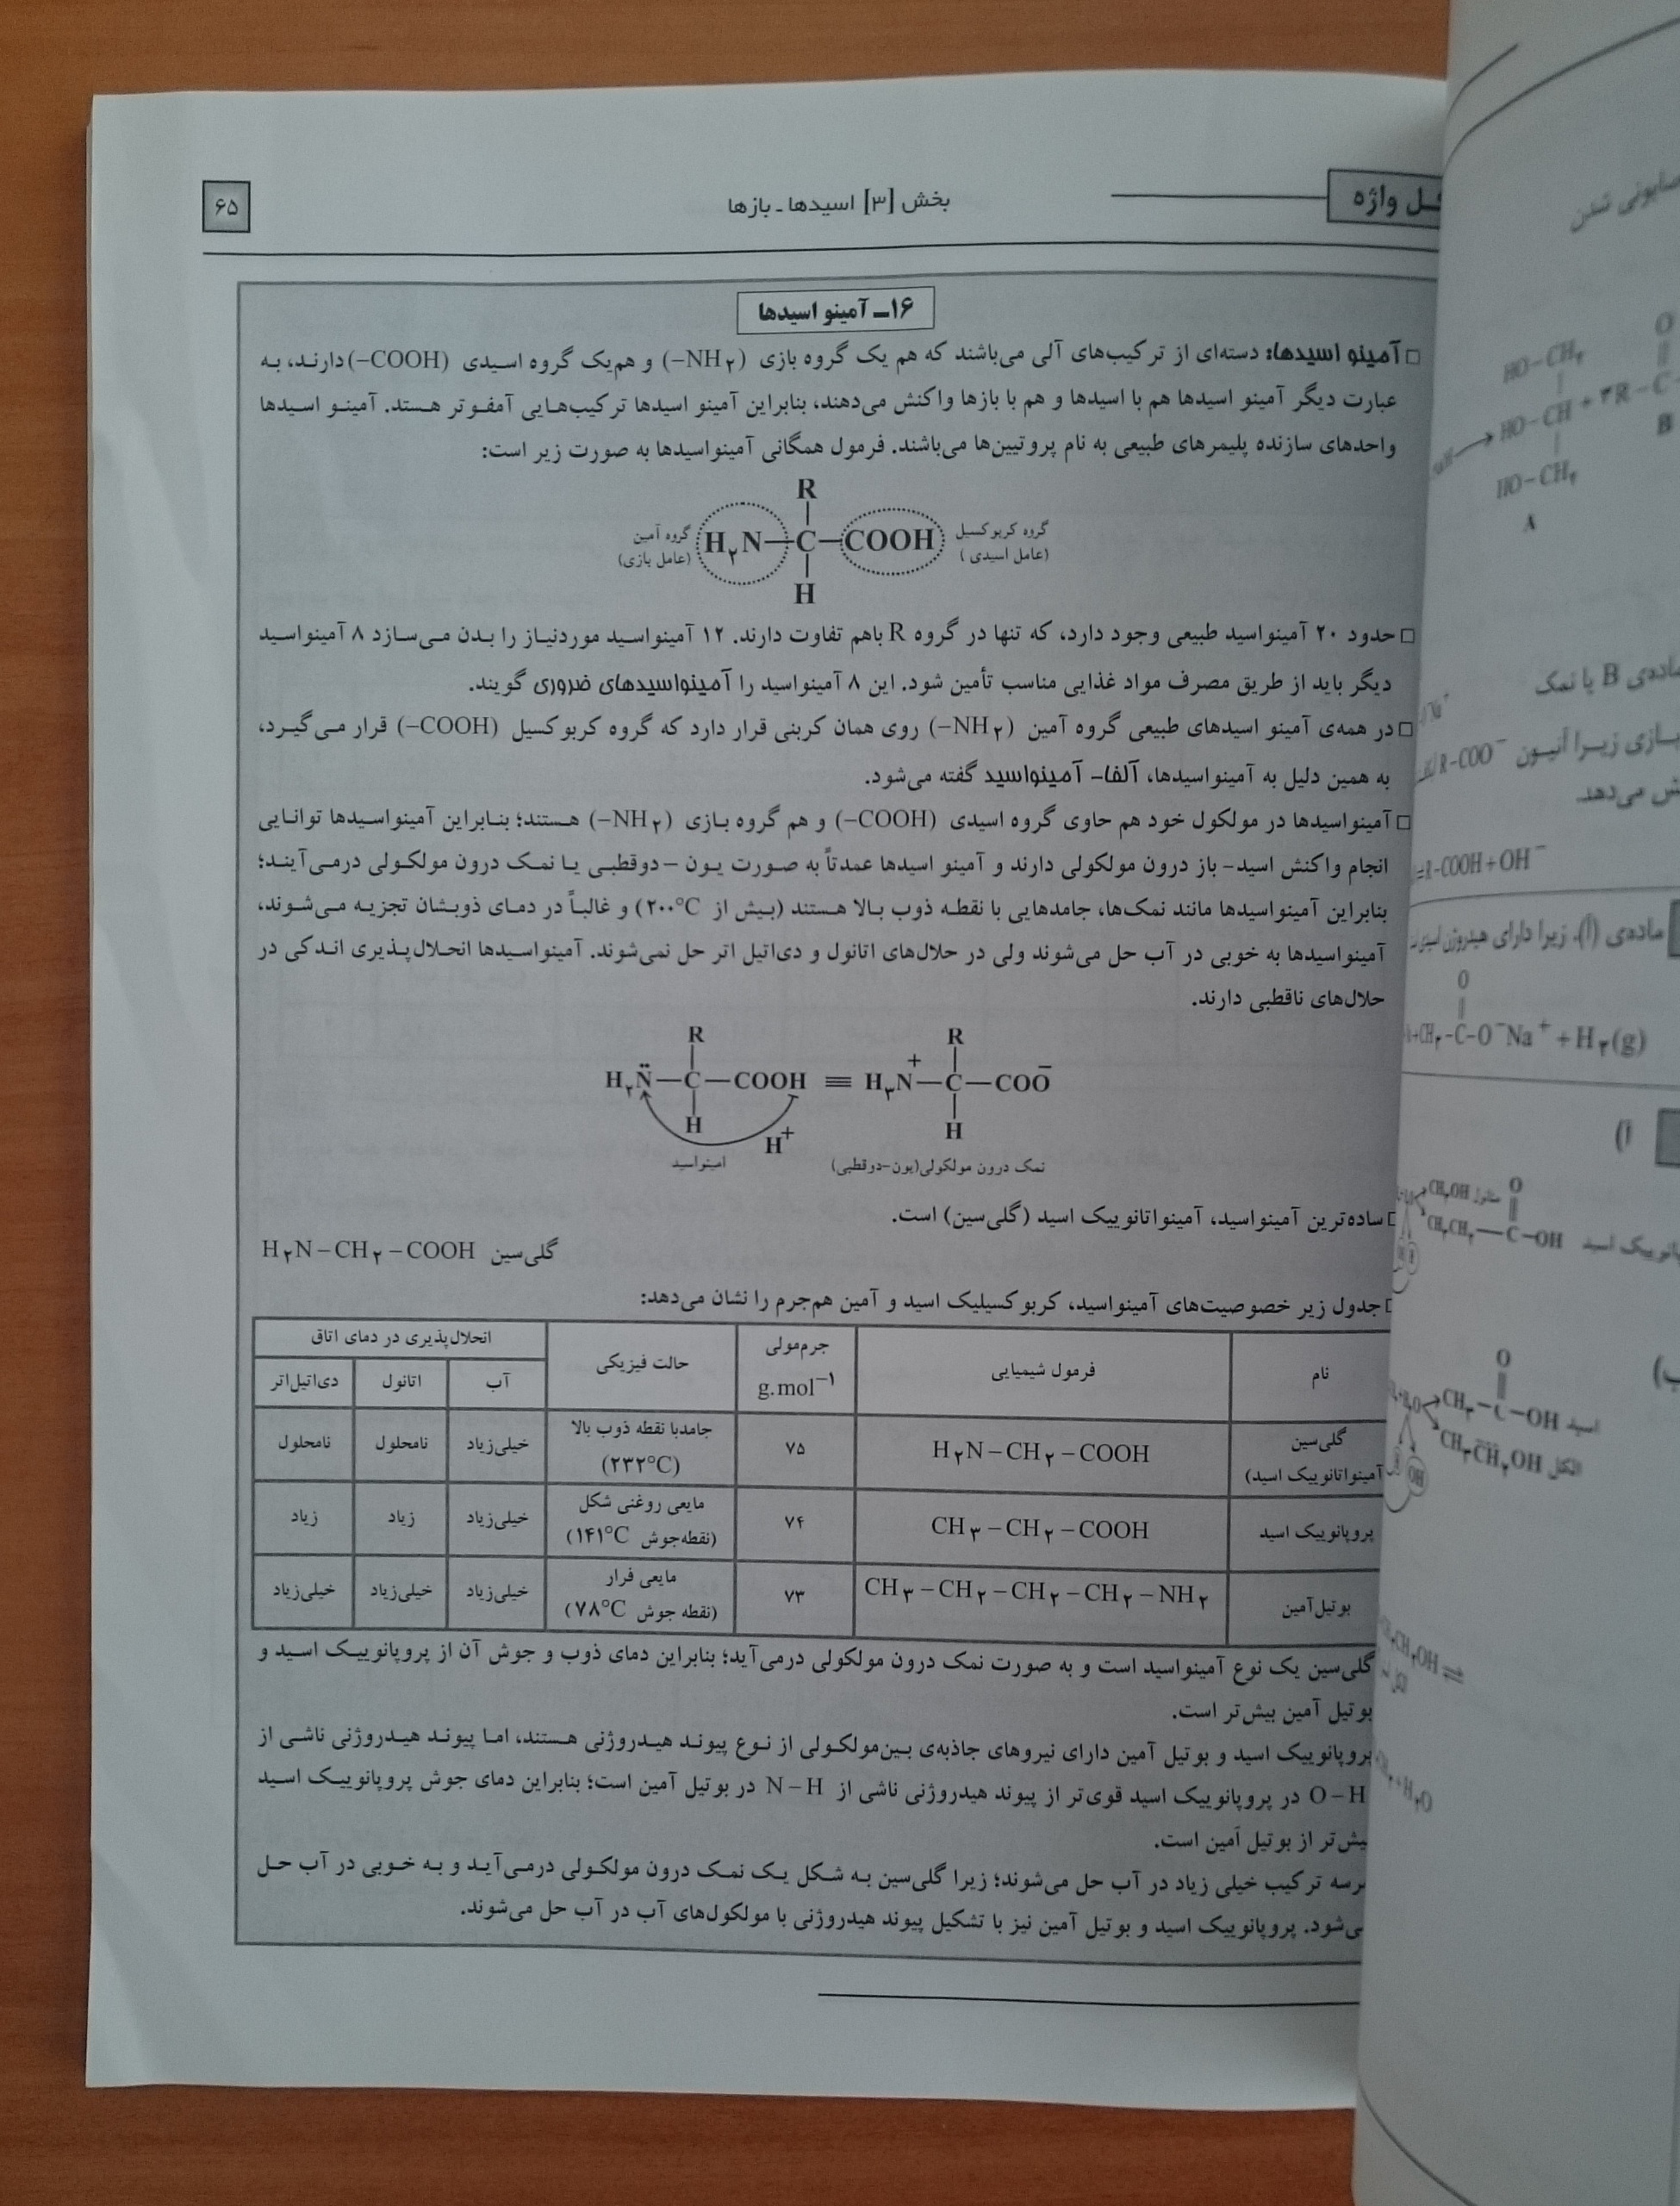 ۶۵
بخش [۳] اسیدها ـ بازها
واژه
۱۶ـ آمینو اسیدها
□ آمینو اسیدها: دسته‌ای از ترکیب‌های آلی می‌باشند که هم یک گروه بازی (−NH۲) و هم‌یک گروه اسیدی (−COOH) دارند، به
عبارت دیگر آمینو اسیدها هم با اسیدها و هم با بازها واکنش می‌دهند، بنابراین آمینو اسیدها ترکیب‌هایی آمفوتر هستد. آمینو اسیدها
واحدهای سازنده پلیمرهای طبیعی به نام پروتیین‌ها می‌باشند. فرمول همگانی آمینواسیدها به صورت زیر است:
R
گروه آمین H۲N−C−COOH گروه کربوکسیل
(عامل بازی) (عامل اسیدی)
H
□ حدود ۲۰ آمینواسید طبیعی وجود دارد، که تنها در گروه R باهم تفاوت دارند. ۱۲ آمینواسید موردنیاز را بدن می‌سازد ۸ آمینواسید
دیگر باید از طریق مصرف مواد غذایی مناسب تأمین شود. این ۸ آمینواسید را آمینواسیدهای ضروری گویند.
□ در همه‌ی آمینو اسیدهای طبیعی گروه آمین (−NH۲) روی همان کربنی قرار دارد که گروه کربوکسیل (−COOH) قرار می‌گیرد،
به همین دلیل به آمینواسیدها، آلفا- آمینواسید گفته می‌شود.
□ آمینواسیدها در مولکول خود هم حاوی گروه اسیدی (−COOH) و هم گروه بازی (−NH۲) هستند؛ بنابراین آمینواسیدها توانایی
انجام واکنش اسید- باز درون مولکولی دارند و آمینو اسیدها عمدتاً به صورت یون –دوقطبی یا نمک درون مولکولی درمی‌آیند؛
بنابراین آمینواسیدها مانند نمک‌ها، جامدهایی با نقطه ذوب بالا هستند (بیش از ۲۰۰°C) و غالباً در دمای ذوبشان تجزیه می‌شوند،
آمینواسیدها به خوبی در آب حل می‌شوند ولی در حلال‌های اتانول و دی‌اتیل اتر حل نمی‌شوند. آمینواسیدها انحلال‌پذیری اندکی در
حلال‌های ناقطبی دارند.
R R
H۲N̈−C−COOH ≡ H۳N⁺−C−COO⁻
H H⁺ H
آمینواسید نمک درون مولکولی(یون-دوقطبی)
□ ساده‌ترین آمینواسید، آمینواتانوییک اسید (گلی‌سین) است.
گلی‌سین H۲N−CH۲−COOH
□ جدول زیر خصوصیت‌های آمینواسید، کربوکسیلیک اسید و آمین هم‌جرم را نشان می‌دهد:
نام فرمول شیمیایی جرم‌مولی g.mol⁻¹ حالت فیزیکی انحلال‌پذیری در دمای اتاق
آب اتانول دی‌اتیل‌اتر
گلی‌سین H۲N−CH۲−COOH ۷۵ جامدبا نقطه ذوب بالا خیلی‌زیاد نامحلول نامحلول
آمینواتانوییک اسید) (۲۳۲°C)
پروپانوییک اسید CH۳−CH۲−COOH ۷۴ مایعی روغنی شکل خیلی‌زیاد زیاد زیاد
(نقطه‌جوش ۱۴۱°C)
بوتیل‌آمین CH۳−CH۲−CH۲−CH۲−NH۲ ۷۳ مایعی فرار خیلی‌زیاد خیلی‌زیاد خیلی‌زیاد
(نقطه جوش ۷۸°C)
گلی‌سین یک نوع آمینواسید است و به صورت نمک درون مولکولی درمی‌آید؛ بنابراین دمای ذوب و جوش آن از پروپانوییک اسید و
بوتیل آمین بیش‌تر است.
پروپانوییک اسید و بوتیل آمین دارای نیروهای جاذبه‌ی بین‌مولکولی از نوع پیوند هیدروژنی هستند، اما پیوند هیدروژنی ناشی از
O−H در پروپانوییک اسید قوی‌تر از پیوند هیدروژنی ناشی از N−H در بوتیل آمین است؛ بنابراین دمای جوش پروپانوییک اسید
بیش‌تر از بوتیل آمین است.
هرسه ترکیب خیلی زیاد در آب حل می‌شوند؛ زیرا گلی‌سین به شکل یک نمک درون مولکولی درمی‌آید و به خوبی در آب حل
می‌شود. پروپانوییک اسید و بوتیل آمین نیز با تشکیل پیوند هیدروژنی با مولکول‌های آب در آب حل می‌شوند.
صابونی شدن
O
HO−CH۲
HO−CH + ۳R−C
B
HO−CH۲
A
ماده‌ی B یا نمک
بازی زیرا آنیون R−COO⁻
می‌دهد.
R−COOH+OH⁻
ماده‌ی (آ). زیرا دارای هیدروژن اسیدی
O
CH۳−C−O⁻Na⁺ + H۲(g)
آ)
متانول CH۳OH O
CH۳CH۲−C−OH
ب)
O
CH۳−C−OH اسید
CH۳CH۲OH الکل